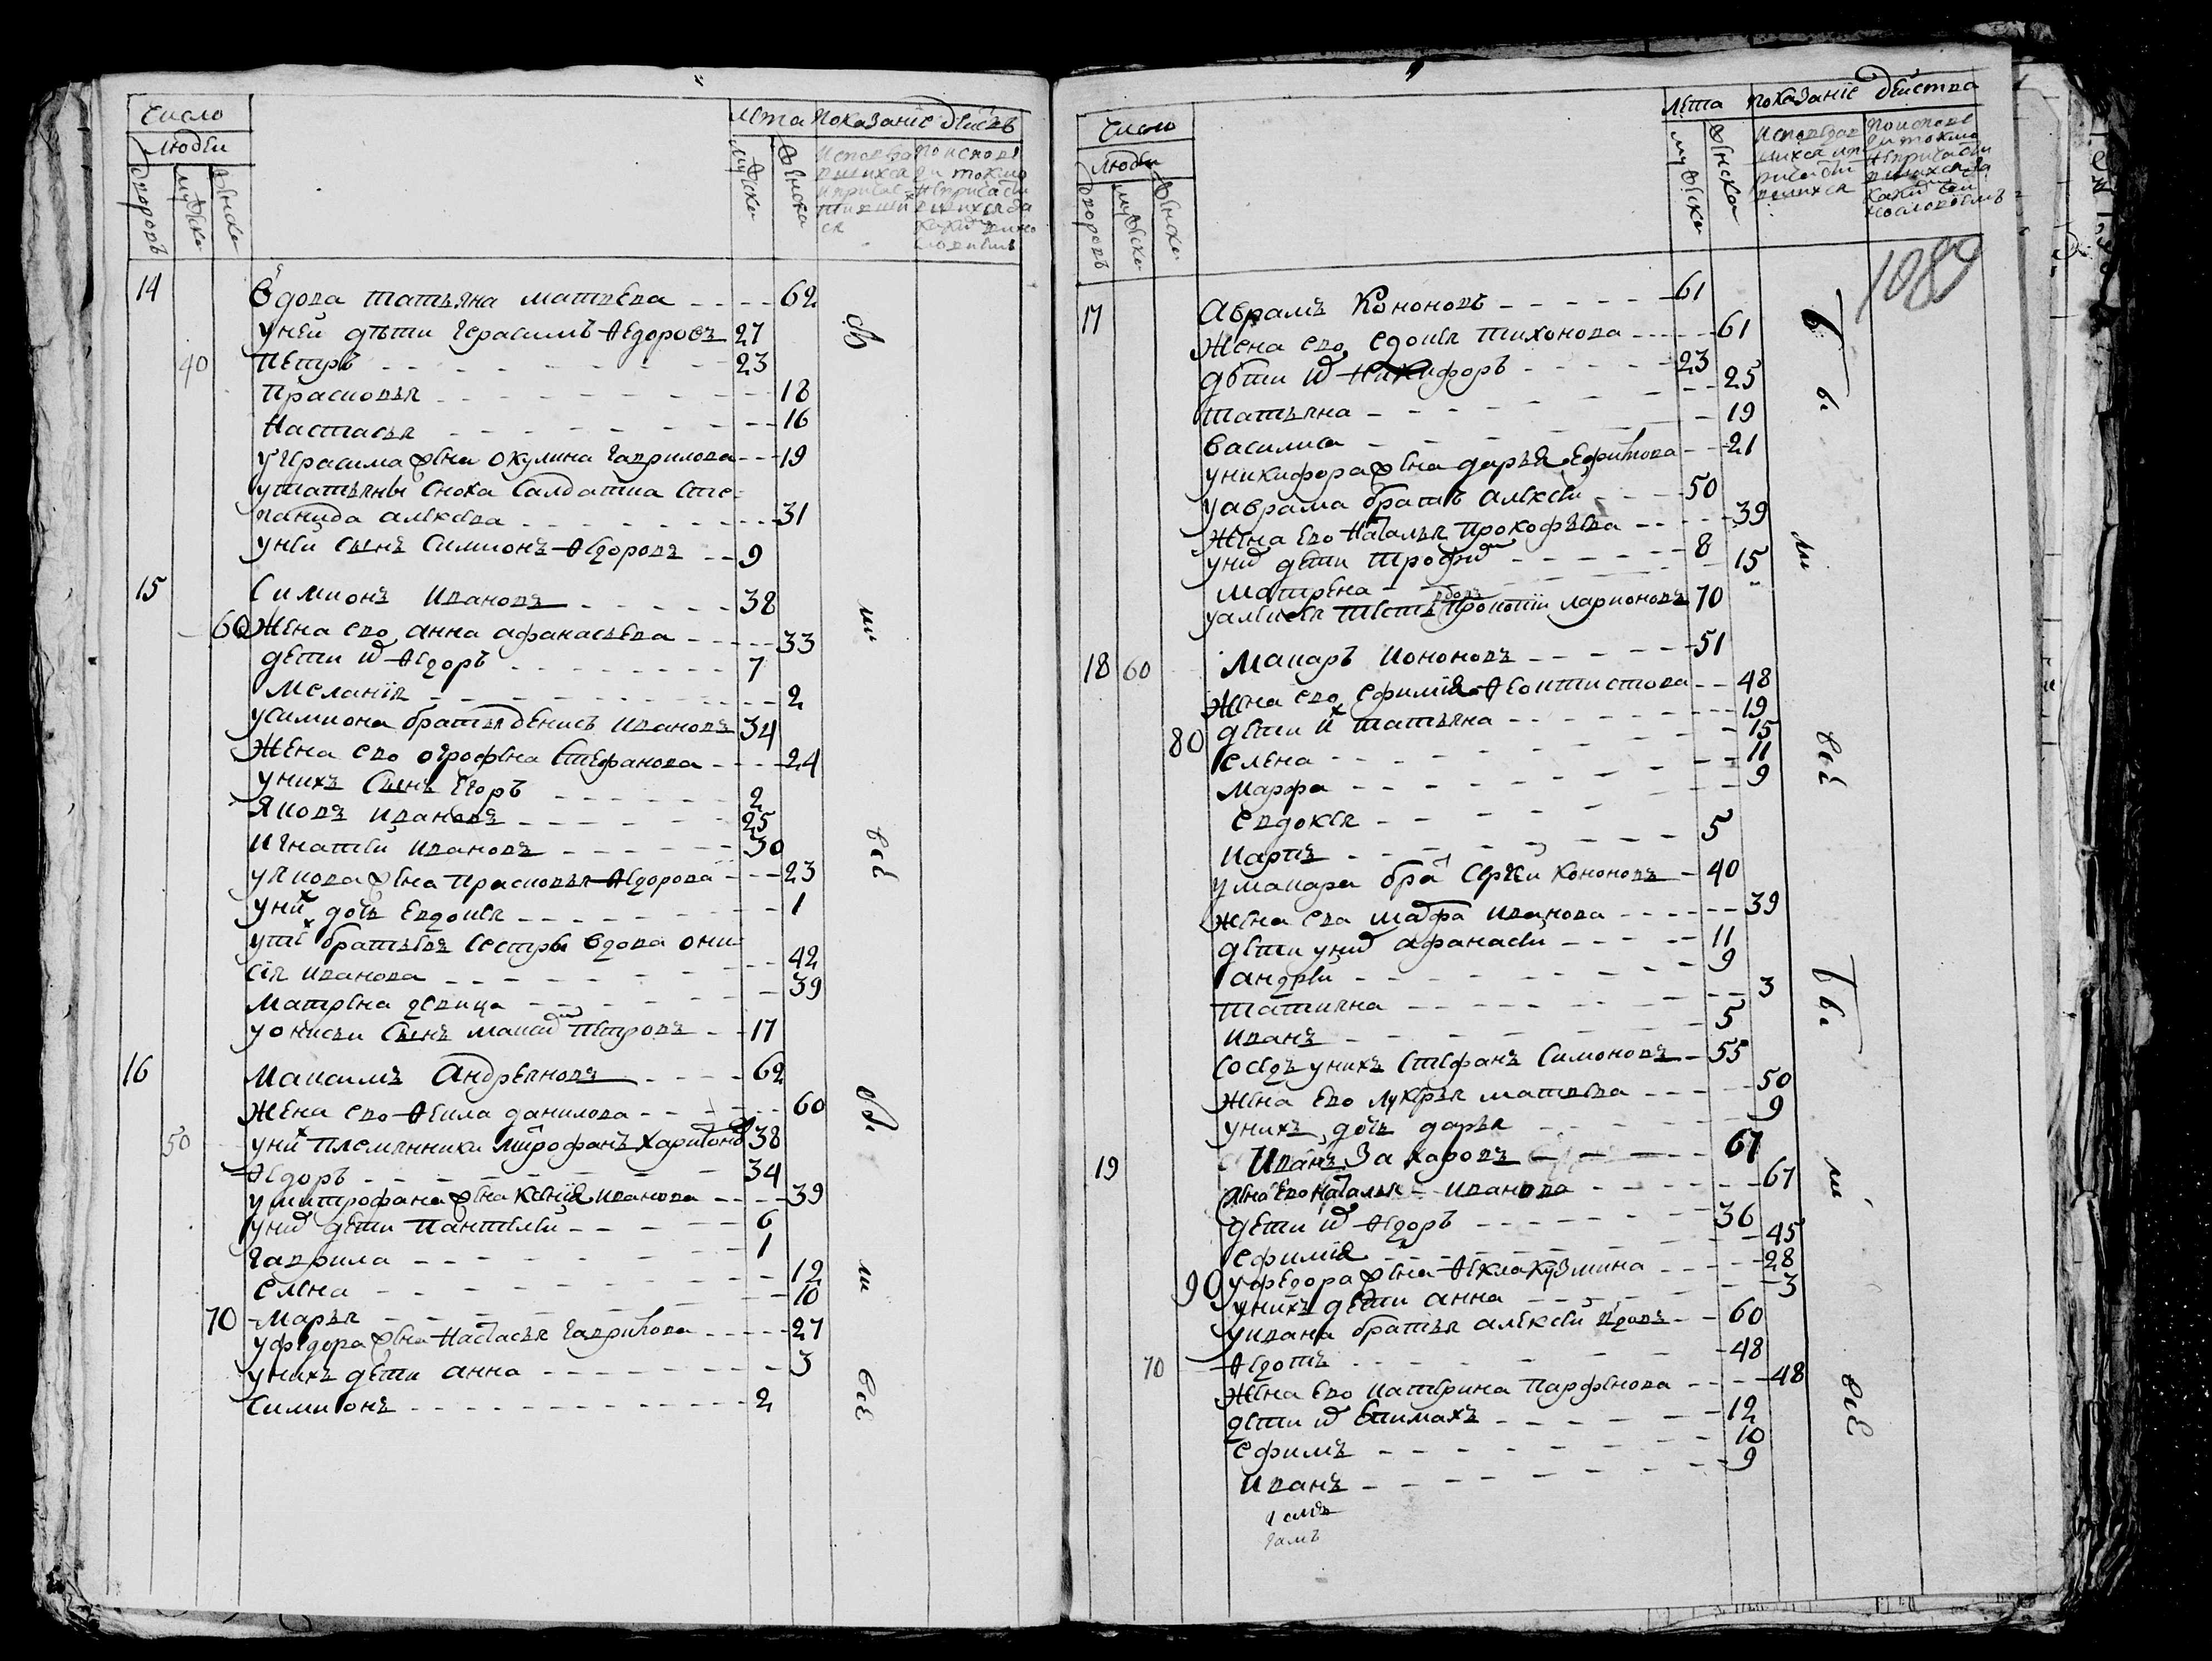 число
людей
дворовъ
мужска
женска
лета
показание действъ
мужска
женска
14 вдова татьяна матвева 62
у ней дѣти герасимъ федоровъ 27
40 петръ 23
прасковья 18
настасья 16
у герасима жена окулина гаврилова 19
у татьяны сноха салдатка сте
панида алексева 31
у ней сынъ симионъ федоровъ 9
15 Симионъ ивановъ 38
60 жена ево анна афанасьева 33
дети их федоръ 7
меланія 2
у симиона братья денисъ ивановъ 34
жена ево огрофена стефанова 24
у нихъ сынъ егоръ 2
яковъ ивановъ 25
игнатей ивановъ 30
у якова жена прасковья федорова 23
у них дочь евдокея 1
у тех братьевъ сестры вдова они
сия иванова 42
матрена девица 39
у онисьи сынъ максим петровъ 17
16 максимъ андреяновъ 62
жена ево фекла данилова 60
50 у них племянники митрофанъ харитонов 38
федоръ 34
у митрофана жена ксения иванова 39
у них дети пантелей 6
гаврила 1
елена 12
70 марья 10
у федора жена настасья гаврилова 27
у нихъ дети анна 3
симионъ 2
число
людей
дворовъ
мужска
женска
лета
показаніе действа
мужска
женска
1089
17 аврамъ кононовъ 61
жена ево едокия тихонова 61
дѣти их никифоръ 23
татьяна 25
василиса 19
у никифора жена дарья ефимова 21
у аврама братъ алексей 50
жена ево наталья прокофьева 39
у них дети трофим 8
матрена 15
у алексея тесть вдовъ прокопій ларионовъ 70
18 60 макаръ кононовъ 51
жена ево ефимия феоктистова 48
80 дети их татьяна 19
елена 15
марфа 11
евдокея 9
карпъ 5
у макара брат сергей кононовъ 40
жена ева марфа иванова 39
дети у них афанасей 11
андрей 9
татияна 3
иванъ 5
соседъ у нихъ стефанъ симоновъ 55
жена ево лукерья матвева 50
у нихъ дочь дарья 9
19 иванъ захаровъ 67
жена ево наталья иванова 67
дети их федоръ 36
ефимия 45
90 у федора жена фекла кузмина 28
у нихъ дети анна 3
у ивана братья алексей вдовъ 60
70 федотъ 48
жена ево катерина парфенова 48
дети их епимахъ 12
ефимъ 10
иванъ 9